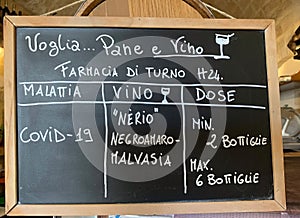 Voglia... Pane e Vino
Farmacia di turno H24.
Malattia VINO DOSE
Covid-19 "Nèrio" Min.
Negroamaro- 2 Bottiglie
Malvasia Max.
6 Bottiglie